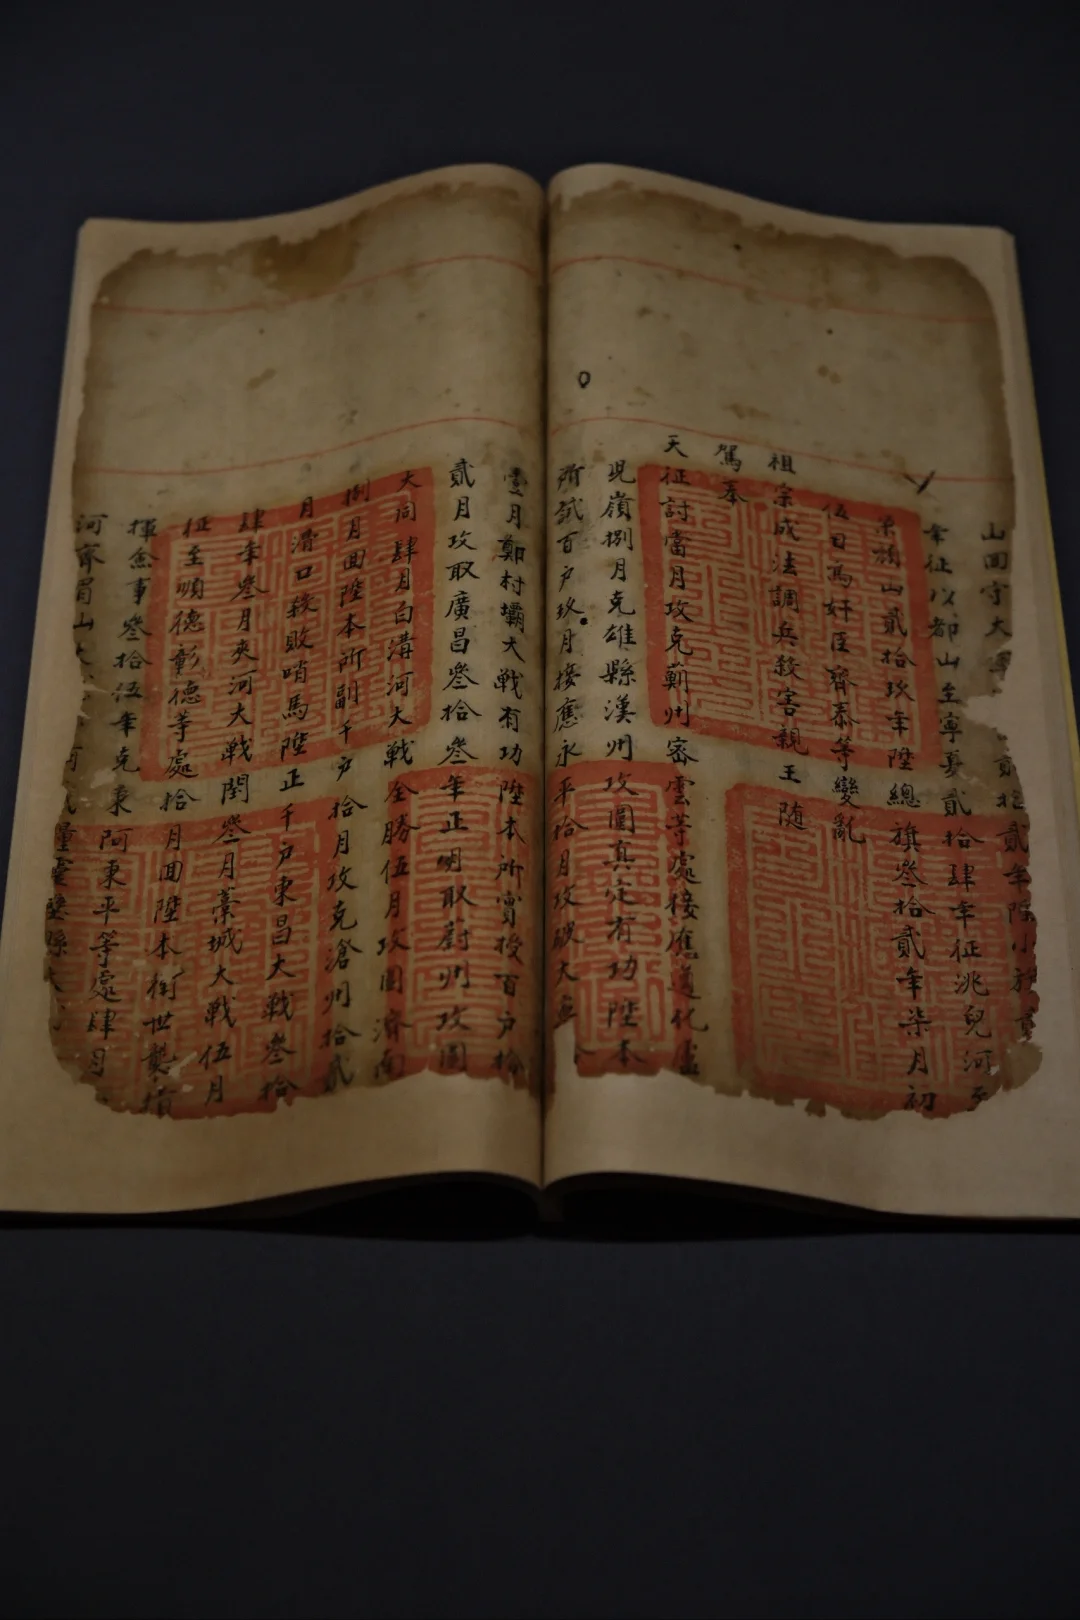 山回守大
貳拾貳年陞小旗
年征以都山至寧夏貳拾肆年征洮兒河至
山貳拾玖年陞總旗叁拾貳年柒月初
伍日為奸臣齊泰等變亂
祖宗成法調兵殺害親王隨
駕奉
天征討當月攻克薊州密雲等處接應遵化
兒嶺捌月克雄縣漢州攻圍真定有功陞本
所試百戶玖月接應永平拾月攻破大
壹月鄭村壩大戰有功陞本所實授百戶拾
貳月攻取廣昌叁拾叁年正朔取蔚州攻圍
大同肆月白溝河大戰全勝伍月攻圍濟南
捌月回陞本所副千戶拾月攻克滄州拾貳
月滑口殺敗哨馬陞正千戶東昌大戰叁拾
肆年叁月夾河大戰閏叁月藁城大戰伍月
征至順德彰德等處拾月回陞本衛世襲指
揮僉事叁拾伍年克東阿東平等處肆月
河齊眉山大
靈璧縣大